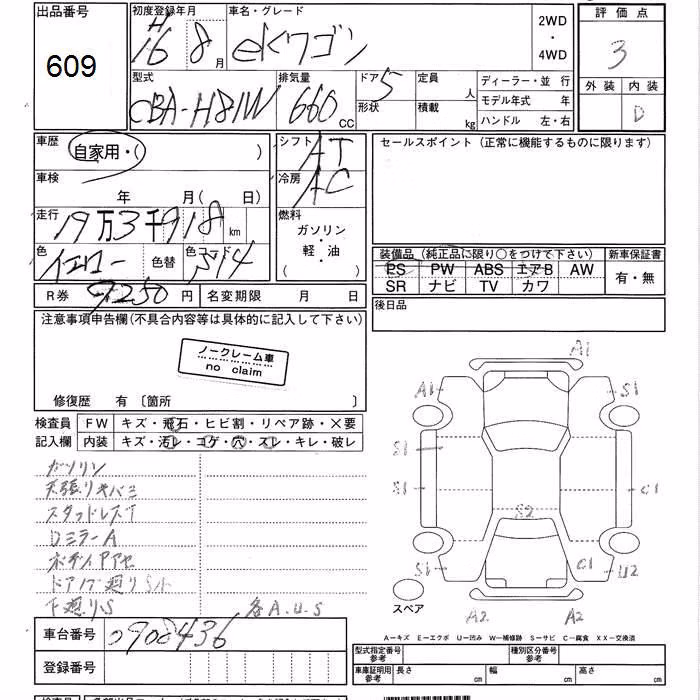 出品番号 初度登録年月 車名・グレード 2WD ・ 4WD 評価点
609 H16 8月 eKワゴン 3
型式 排気量 ドア 定員 人 ディーラー・並 行 外装 内装
CBA-H81W 660 CC 5 形状 積載 kg モデル年式 年 D
ハンドル 左・右
車歴 シフト セールスポイント (正常に機能するものに限ります)
自家用・( ) AT
車検 冷房
年 月( 日) AC
走行 燃料
19万3千918km ガソリン
色 色替 色コード 軽・油 装備品 (純正品に限り○をつけて下さい) 新車保証書
イエロー PS PW ABS エアB AW 有・無
SR ナビ TV カワ
R券 9250円 名変期限 月 日 後日品
注意事項申告欄(不具合内容等は具体的に記入して下さい)
ノークレーム車
no claim
修復歴 有 〔箇所 〕
検査員 FW キズ・飛石・ヒビ割・リペア跡・×要
記入欄 内装 キズ・汚レ・コゲ・穴・スレ・キレ・破レ
ガソリン
天張リキバミ
スタッドレス
DミラーA
ボディ
ドア
下廻りS 各A.U.S
A1
A1 S1
S1
S1 C1
S2
S1 C1 U2
スペア
A2 A2
A-キズ E-エクボ U-凹み W-補修跡 S-サビ C-腐食 XX-交換済
車台番号 0900436
登録番号
型式指定番号 参考 種別区分番号 参考
車庫証明用 参考 長さ 幅 高さ
cm cm cm